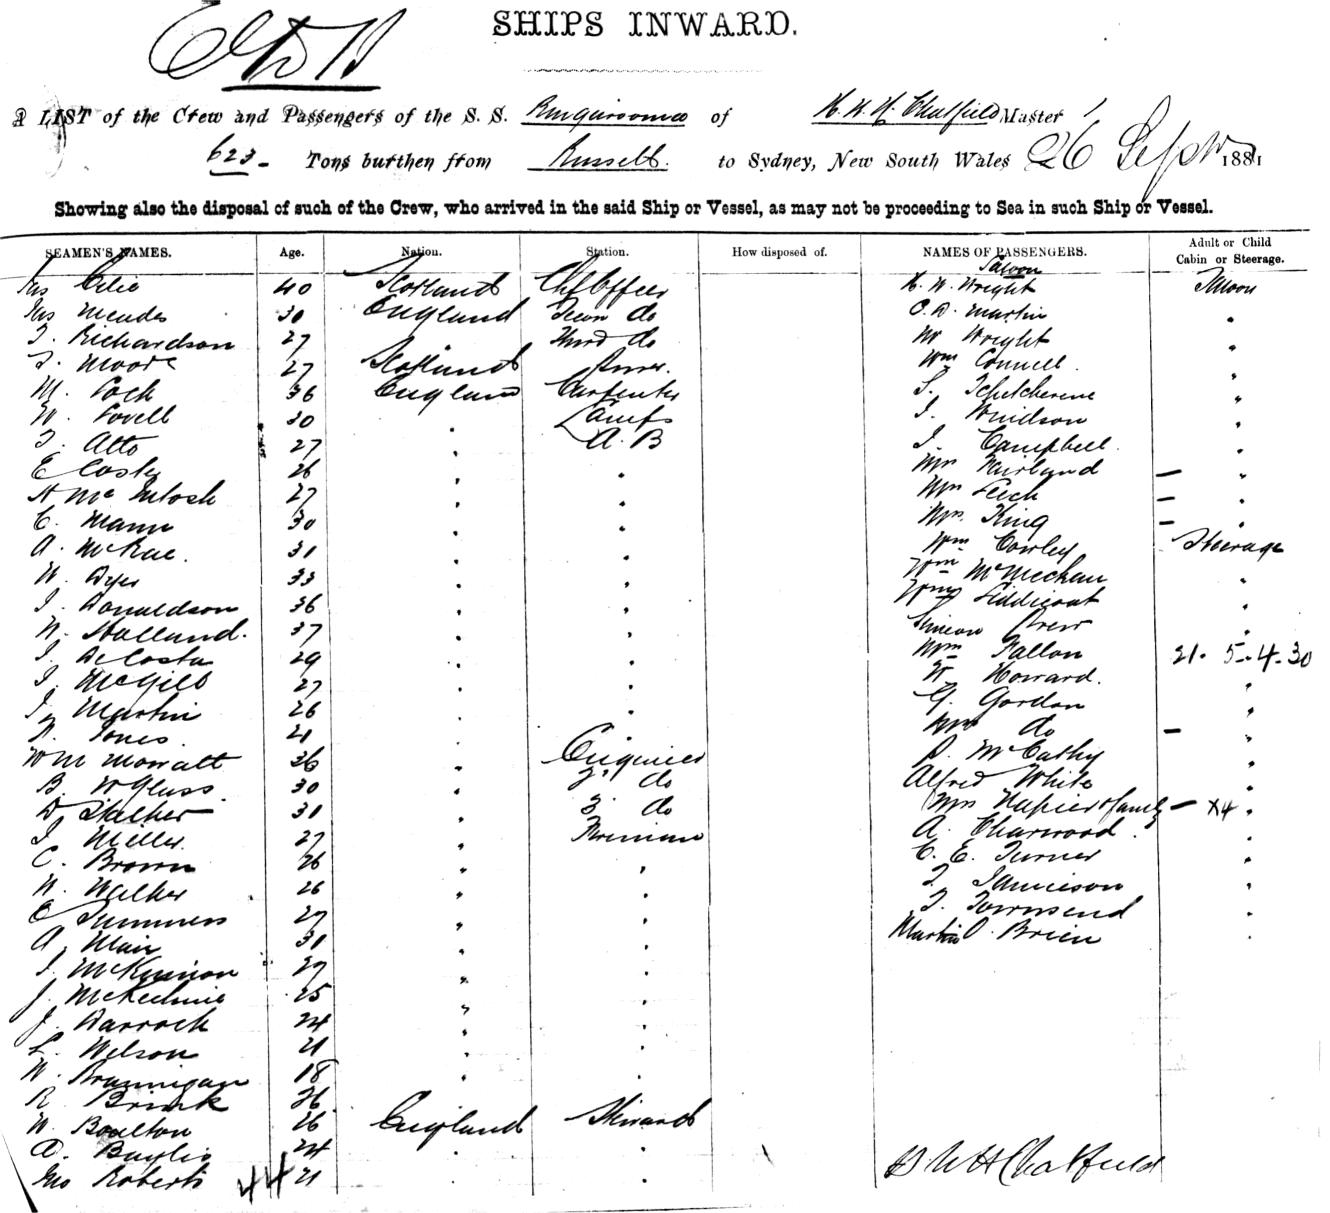 SHIPS INWARD.
A LIST of the Crew and Passengers of the S. S. Ringarooma of H. W. H. Chatfield Master
623 Tons burthen from Russell to Sydney, New South Wales 26 Sept 1881
Showing also the disposal of such of the Crew, who arrived in the said Ship or Vessel, as may not be proceeding to Sea in such Ship or Vessel.
SEAMEN'S NAMES. Age. Nation. Station. How disposed of. NAMES OF PASSENGERS. Adult or Child Cabin or Steerage.
Saloon
Jas 40 Scotland Ch Officer H. W. Wright Saloon
Jas Meades 30 England Secon do C. D. Martin "
J. Richardson 27 Third do W Wright "
J. Moore 27 Scotland Purser. Wm Connell "
M. Lock 36 England Carpenter S. "
W. Lovell 30 " Lamps J. Windson "
J. Atto 27 " A. B J. Campbell. "
E Cosky 26 " " Mrs Fairland — "
A McIntosh 27 " " Mrs Leich — "
C. Mann 30 " " Mrs. King — "
A. McRae. 31 " " Wm Cowley Steerage
W. Dyer 33 " " Wm McMechan "
J. Donaldson 36 " " Liddicoat "
W. Holland. 37 " " Simeon Drew "
J. DeCosta 29 " " Wm Fallon 21. 5. 4. 30
J. McGill 27 " " W. Howard. "
J. Martin 26 " " G. Gordon "
Jones 21 " " Mrs do — "
Wm Mowatt 36 " Engineer D. McCathy "
B. W Glass. 30 " 2 do Alfred White "
D Stalker 31 " 3 do Mrs Napier & family — x4 "
J. Miller 27 " Fireman A. Charwood. "
C. Brown 26 " " C. E. Turner "
W. Walker 26 " " J. Jamieson "
C Summers 27 " " J. Townsend "
A. Mair 31 " " Martin O. Brien "
J. McKinnon 27 " "
J. McKechnie 25 " "
J. Darroch 24 " "
L. Wilson 21 " "
W. Brannigan 18 " "
R. Brink 26
W. Boulton 26 England Steward
A. Baylis 24 " "
Jno Roberts 44 21 " " H W H Chatfield